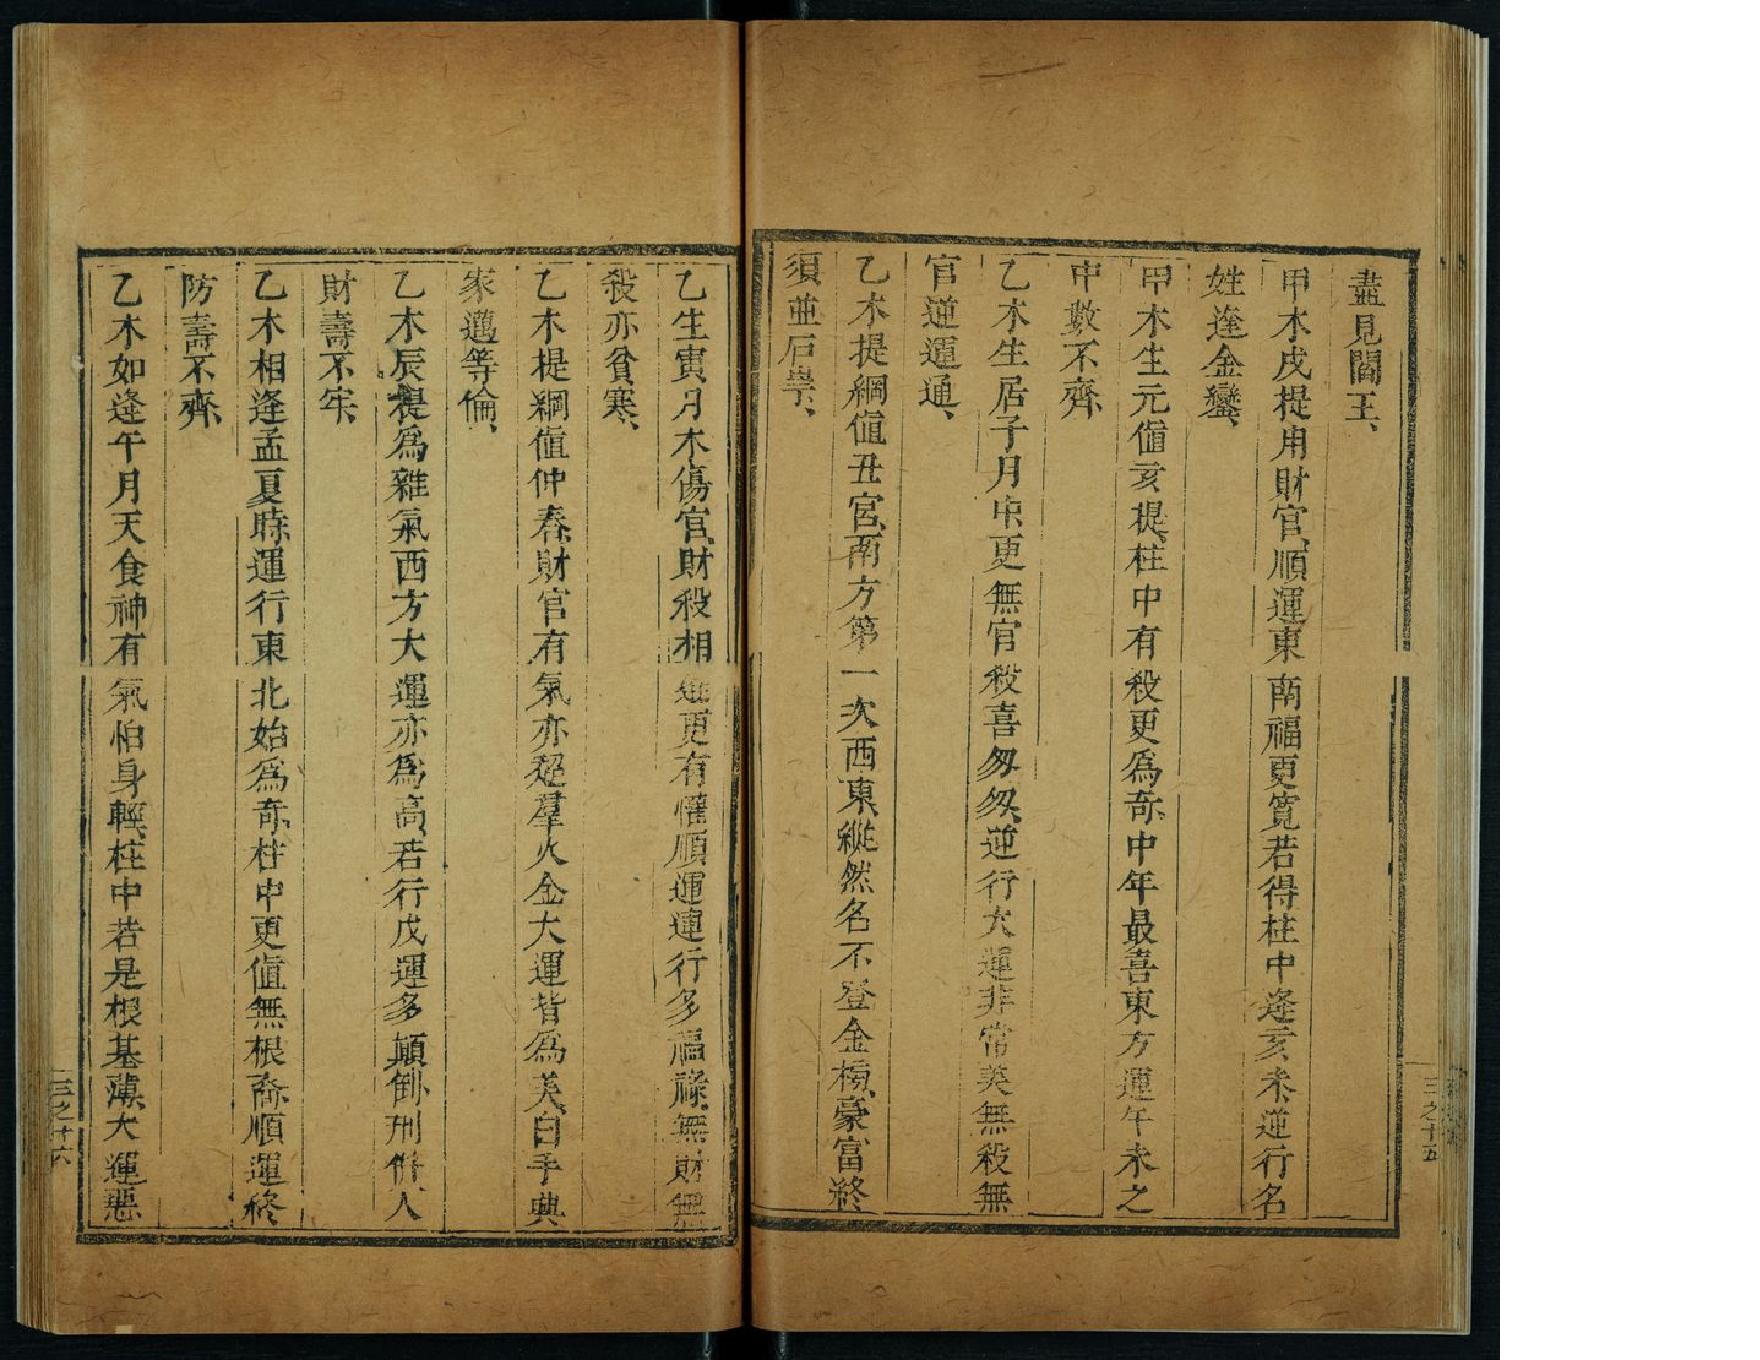 盡見閻王、
甲木戌提用財官、順運東南福更寬若得柱中逢亥未、逆行名
姓達金鑾、
甲木生元值亥提、柱中有殺更爲奇、中年最喜東方運午未之
中數不齊、
乙木生居子月中更無官殺喜匆匆、逆行大運非常美無殺無
官逆運通、
乙木提綱值丑宮、南方第一次西東、縱然名不登金榜、豪富終
須並石崇、
乙生寅月木傷官、財殺相逢更有權順運連行多福祿、無財無
殺亦貧寒、
乙木提綱值仲春、財官有氣亦超羣火金大運皆爲美、白手興
家邁等倫、
乙木辰提爲雜氣西方大運亦爲高、若行戊運多顛倒、刑俏人
財壽不牢、
乙木相逢孟夏時、運行東北始爲奇、柱中更值無根裔、順運終
防壽不齊、
乙木如逢午月天食神有氣怕身輕、柱中若是根基薄、大運惡
三之十六